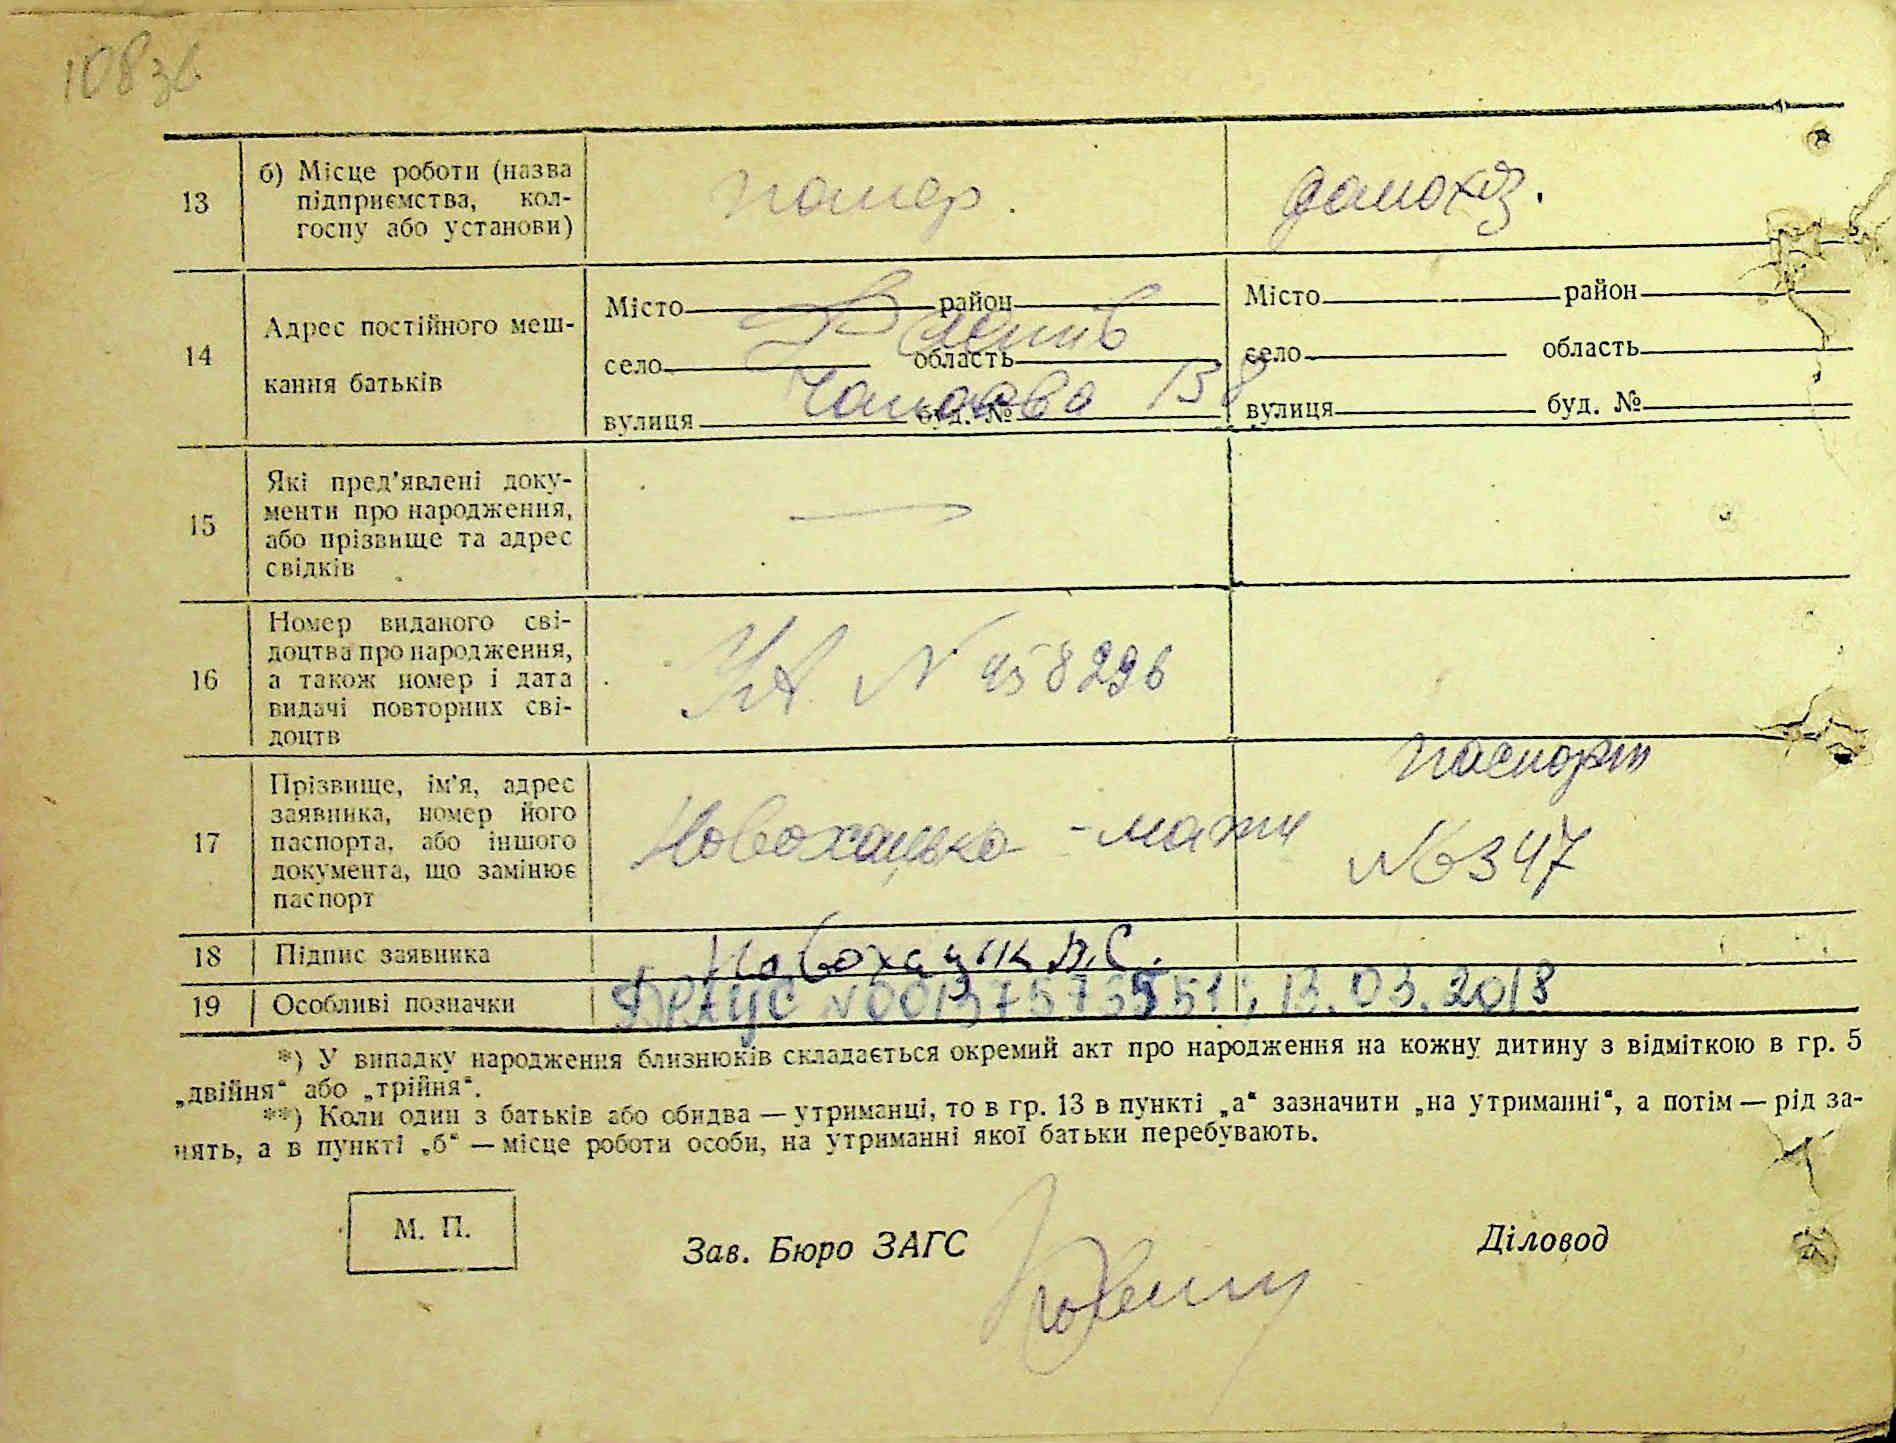 108 зв
13
б) Місце роботи (назва
підприємства, кол-
госпу або установи)
помер.
домохаз.
14
Адрес постійного меш-
кання батьків
Місто район
село область
вулиця буд. №
Чапаєва 138
Місто район
село область
вулиця буд. №
15
Які пред'явлені доку-
менти про народження,
або прізвище та адрес
свідків
—
16
Номер виданого сві-
доцтва про народження,
а також номер і дата
видачі повторних сві-
доцтв
УА N 458296
17
Прізвище, ім'я, адрес
заявника, номер його
паспорта, або іншого
документа, що замінює
паспорт
Новохацька - мати
паспорт
№ 6347
18
Підпис заявника
19
Особливі позначки
ДРАЦС N 13.03.2018
*) У випадку народження близнюків складається окремий акт про народження на кожну дитину з відміткою в гр. 5
„двійня“ або „трійня“.
**) Коли один з батьків або обидва — утриманці, то в гр. 13 в пункті „а“ зазначити „на утриманні“, а потім — рід за-
нять, а в пункті „б“ — місце роботи особи, на утриманні якої батьки перебувають.
М. П.
Зав. Бюро ЗАГС
Діловод